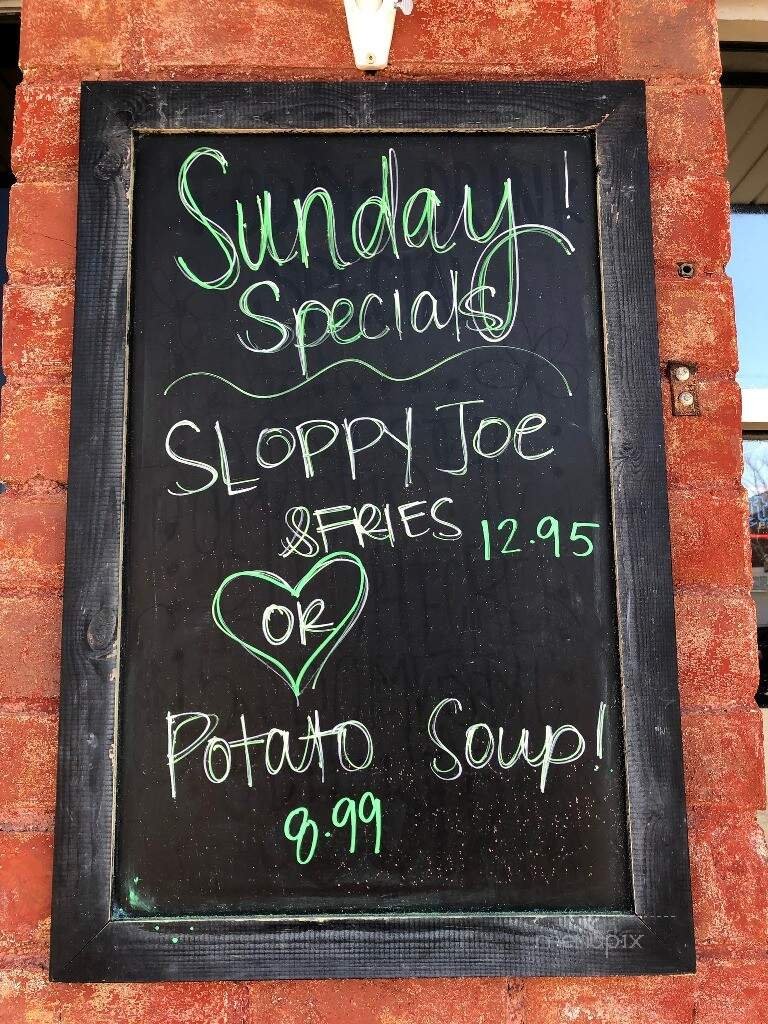 Sunday!
Specials
SLOPPY JOE
& FRIES 12.95
OR
Potato Soup!
8.99
menupix